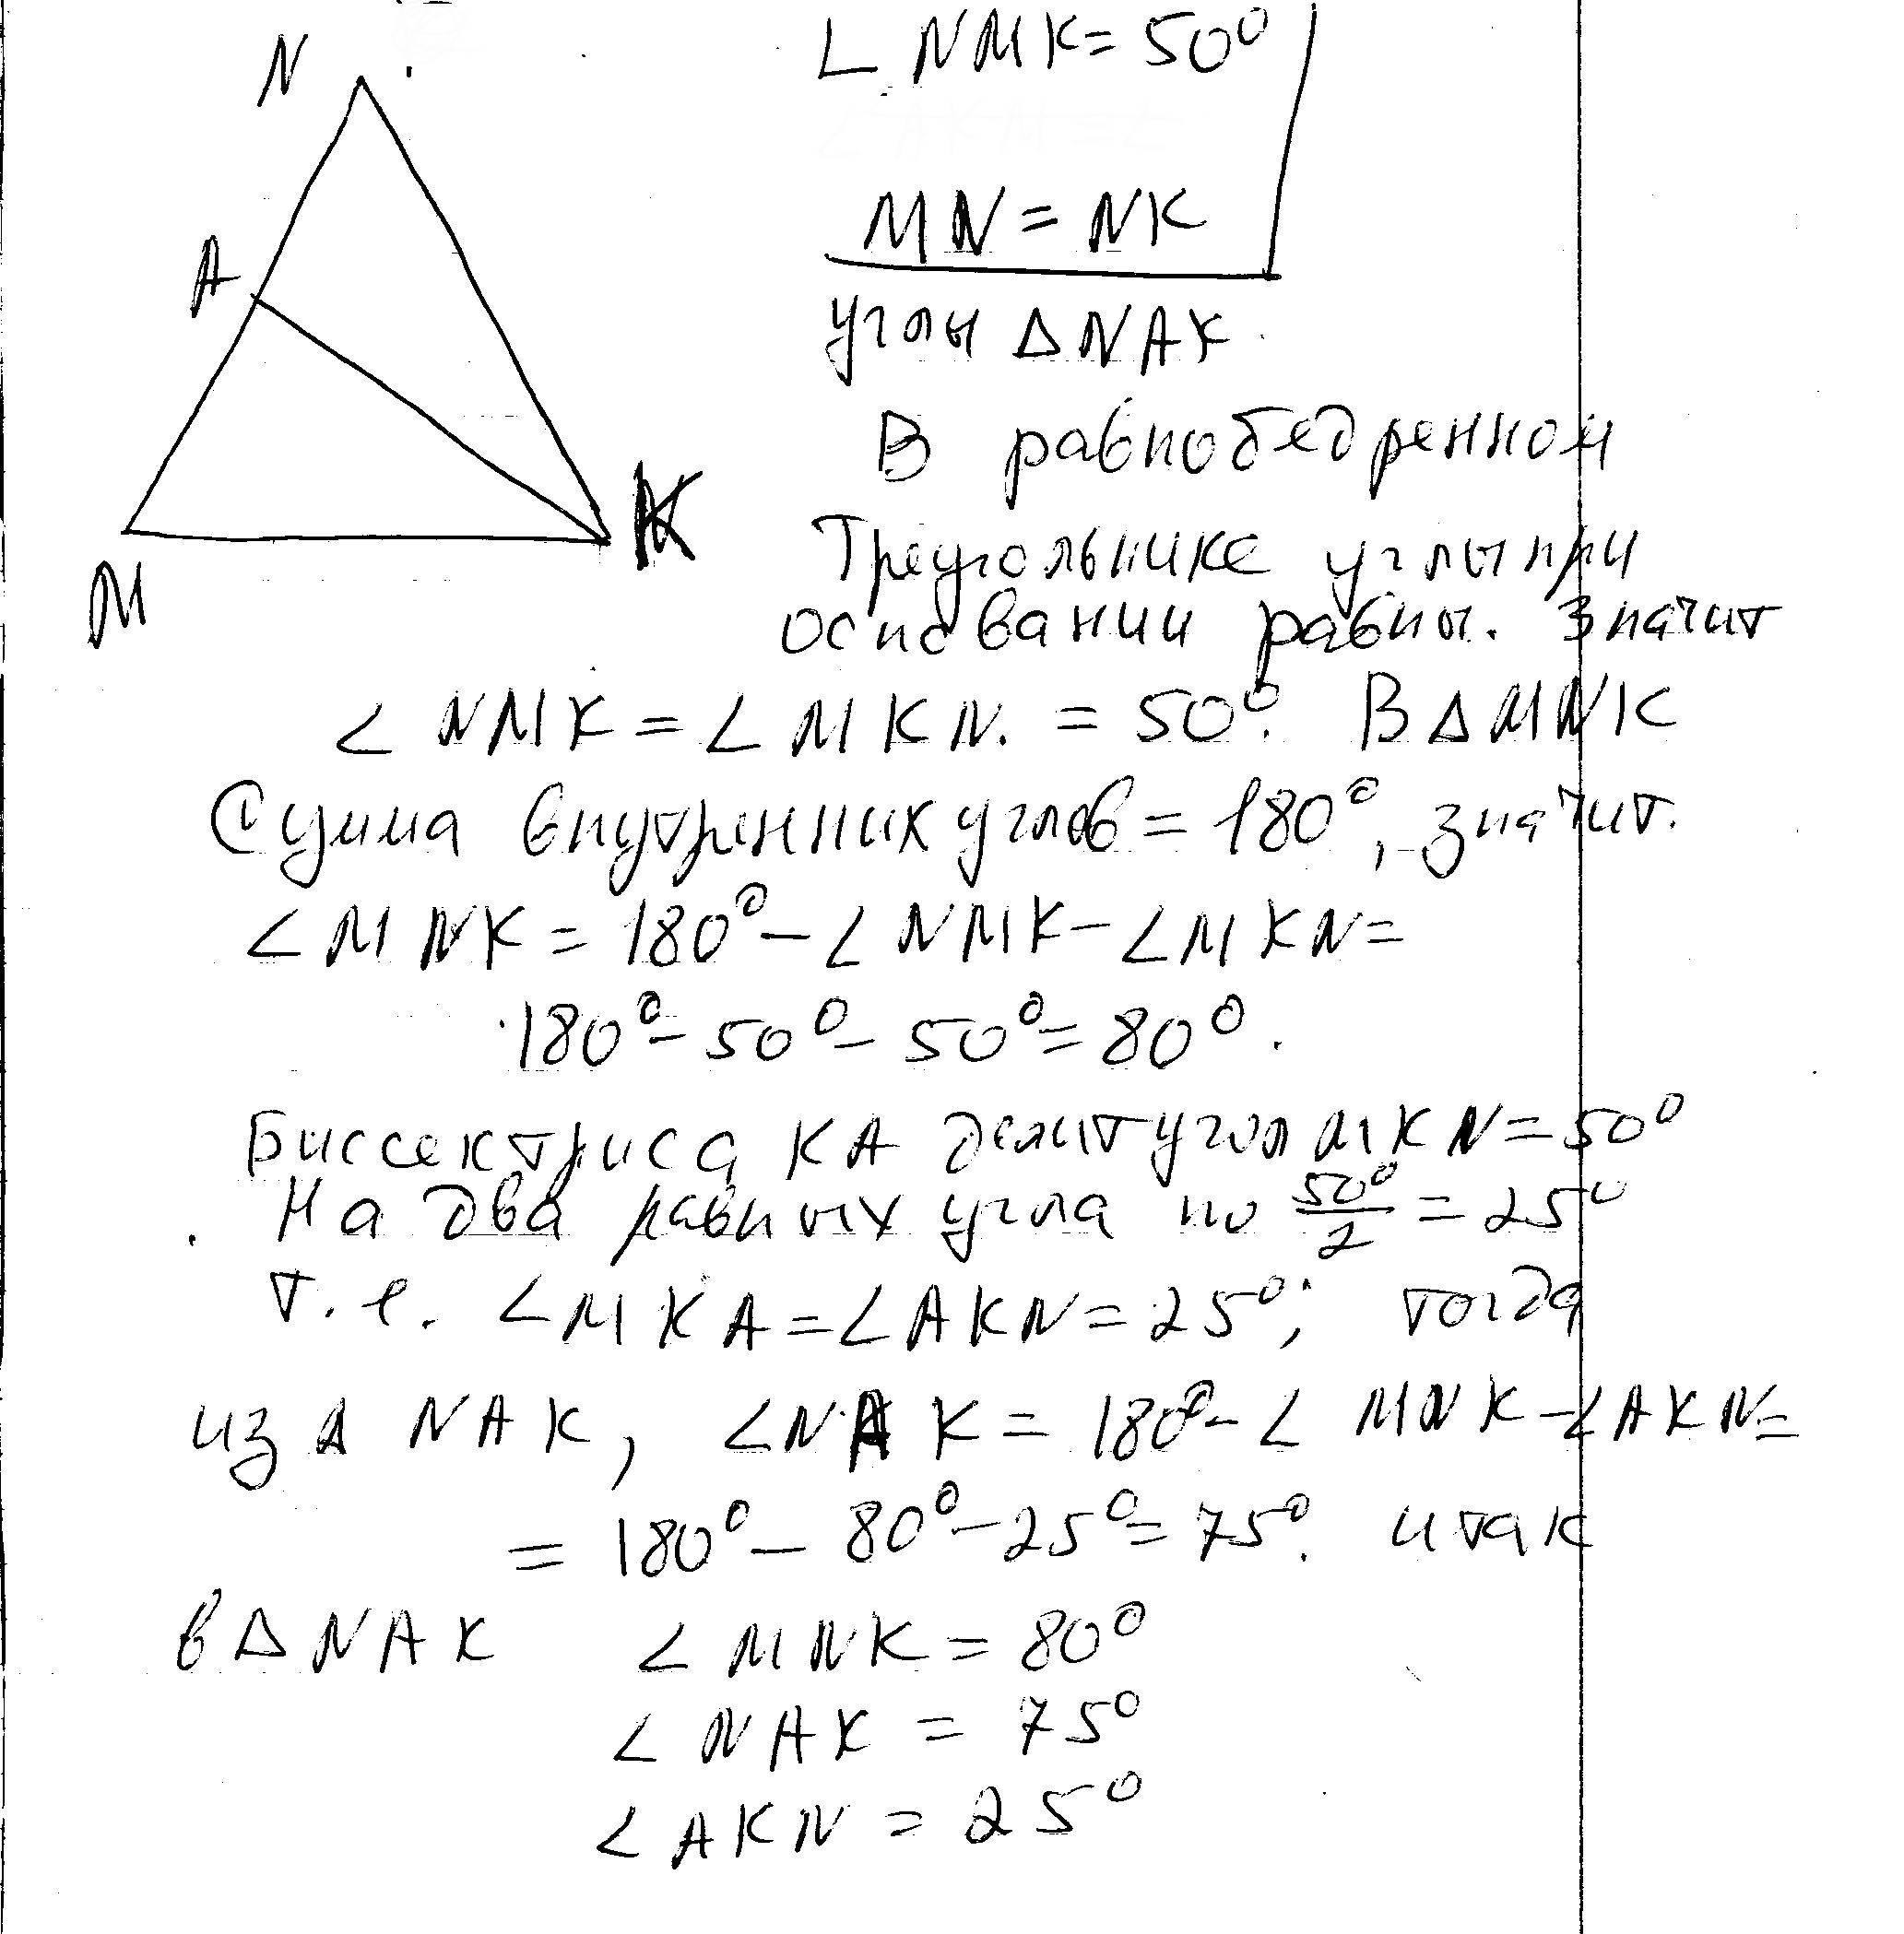 N
∠ NMK = 50°
MN = NK
A
углы Δ NAK.
В равнобедренном
K
Треугольнике углы при
M
основании равны. Значит
∠ NMK = ∠ MKN. = 50°. В Δ MNK
Сумма внутренних углов = 180°, значит.
∠ MNK = 180° - ∠ NMK - ∠ MKN =
180° - 50° - 50° = 80°.
Биссектриса KA делит угол MKN = 50°
На два равных угла по 50°/2 = 25°
т.е. ∠ MKA = ∠ AKN = 25°; тогда
из Δ NAK, ∠ NAK = 180° - ∠ MNK - ∠ AKN =
= 180° - 80° - 25° = 75°. итак
в Δ NAK ∠ MNK = 80°
∠ NAK = 75°
∠ AKN = 25°